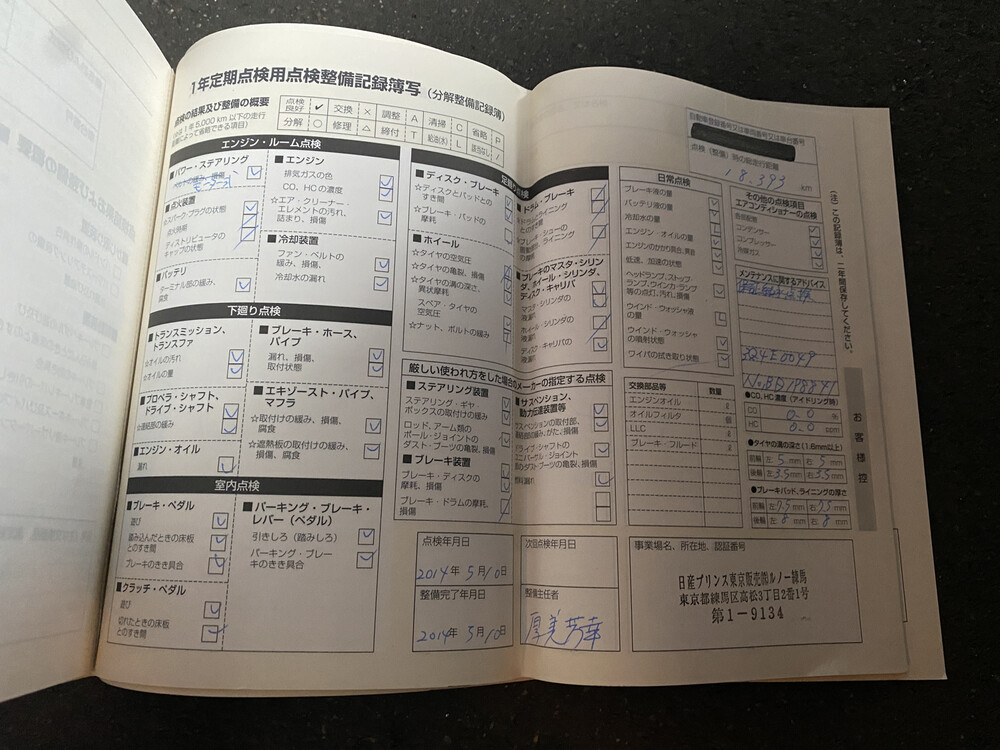 1年定期点検用点検整備記録簿写(分解整備記録簿)
点検の結果及び整備の概要
点検良好 ✓ 交換 × 調整 A 清掃 C 省略 P
分解 ○ 修理 △ 締付 T 給油(水) L 該当なし /
エンジン・ルーム点検
■パワー・ステアリング
■点火装置
ディストリビュータの
キャップの状態
■バッテリ
ターミナル部の緩み、
腐食
■エンジン
排気ガスの色
CO、HCの濃度
☆エア・クリーナー・
エレメントの汚れ、
詰まり、損傷
■冷却装置
ファン・ベルトの
緩み、損傷、
冷却水の漏れ
下廻り点検
■トランスミッション、
トランスファ
☆オイルの汚れ
☆オイルの量
■プロペラ・シャフト、
ドライブ・シャフト
☆連結部の緩み
■エンジン・オイル
漏れ
■ブレーキ・ホース、
パイプ
漏れ、損傷、
取付状態
■エキゾースト・パイプ、
マフラ
☆取付の緩み、損傷、
腐食
☆遮熱板の取付の緩み、
損傷、腐食
室内点検
■ブレーキ・ペダル
遊び
踏み込んだときの床板
とのすき間
ブレーキのきき具合
■クラッチ・ペダル
遊び
切れたときの床板
とのすき間
■パーキング・ブレーキ・
レバー(ペダル)
引きしろ(踏みしろ)
パーキング・ブレー
キのきき具合
■ディスク・ブレーキ
☆ディスクとパッドとの
すき間
☆ブレーキ・パッドの
摩耗
■ホイール
☆タイヤの空気圧
☆タイヤの亀裂、損傷
☆タイヤの溝の深さ、
異状摩耗
スペア・タイヤの
空気圧
☆ナット、ボルトの緩み
■ドラム・ブレーキ
■ブレーキのマスタ・シリン
ダ、ホイール・シリンダ、
ディスク・キャリパ
マスタ・シリンダの
液漏れ
ホイール・シリンダの
液漏れ
ディスク・キャリパの
液漏れ
厳しい使われ方をした場合のメーカーの指定する点検
■ステアリング装置
ステアリング・ギヤ・
ボックスの取付の緩み
ロッド、アーム類の
ボール・ジョイントの
ダスト・ブーツの亀裂、損傷
■ブレーキ装置
ブレーキ・ディスクの
摩耗、損傷
ブレーキ・ドラムの摩耗、
損傷
■サスペンション、
動力伝達装置等
サスペンションの取付部、
ドライブ・シャフトの
ユニバーサル・ジョイント
部のダスト・ブーツの亀裂、損傷
日常点検
ブレーキ液の量
バッテリ液の量
冷却水の量
エンジン・オイルの量
エンジンのかかり具合、異音
低速、加速の状態
ヘッドランプ、ストップ・
ランプ、ウインカ・ランプ
等の点灯、汚れ、損傷
ウインド・ウォッシャ液
の量
ウインド・ウォッシャ
の噴射状態
ワイパの拭き取り状態
交換部品等 数量
エンジンオイル ℓ
オイルフィルタ 個
LLC ℓ
ブレーキ・フルード ℓ
自動車登録番号又は車両番号又は車台番号
点検(整備)時の総走行距離
18,393 km
その他の点検項目
エアコンディショナーの点検
コンデンサー
コンプレッサー
メンテナンスに関するアドバイス
3Q4E0049
●CO、HC濃度(アイドリング時)
CO 0.0 %
HC 0.0 ppm
●タイヤの溝の深さ(1.6mm以上)
前輪 左 5 mm 右 5 mm
後輪 左 3.5 mm 右 3.5 mm
●ブレーキパッド、ライニングの厚さ
前輪 左 7.5 mm 右 7.5 mm
後輪 左 8 mm 右 8 mm
(注)この記録簿は、二年間保存してください。
お客様控
点検年月日
2014年 5月10日
整備完了年月日
2014年 5月10日
次回点検年月日
整備主任者
厚美芳幸
事業場名、所在地、認証番号
日産プリンス東京販売㈱ルノー練馬
東京都練馬区高松3丁目2番1号
第1-9134